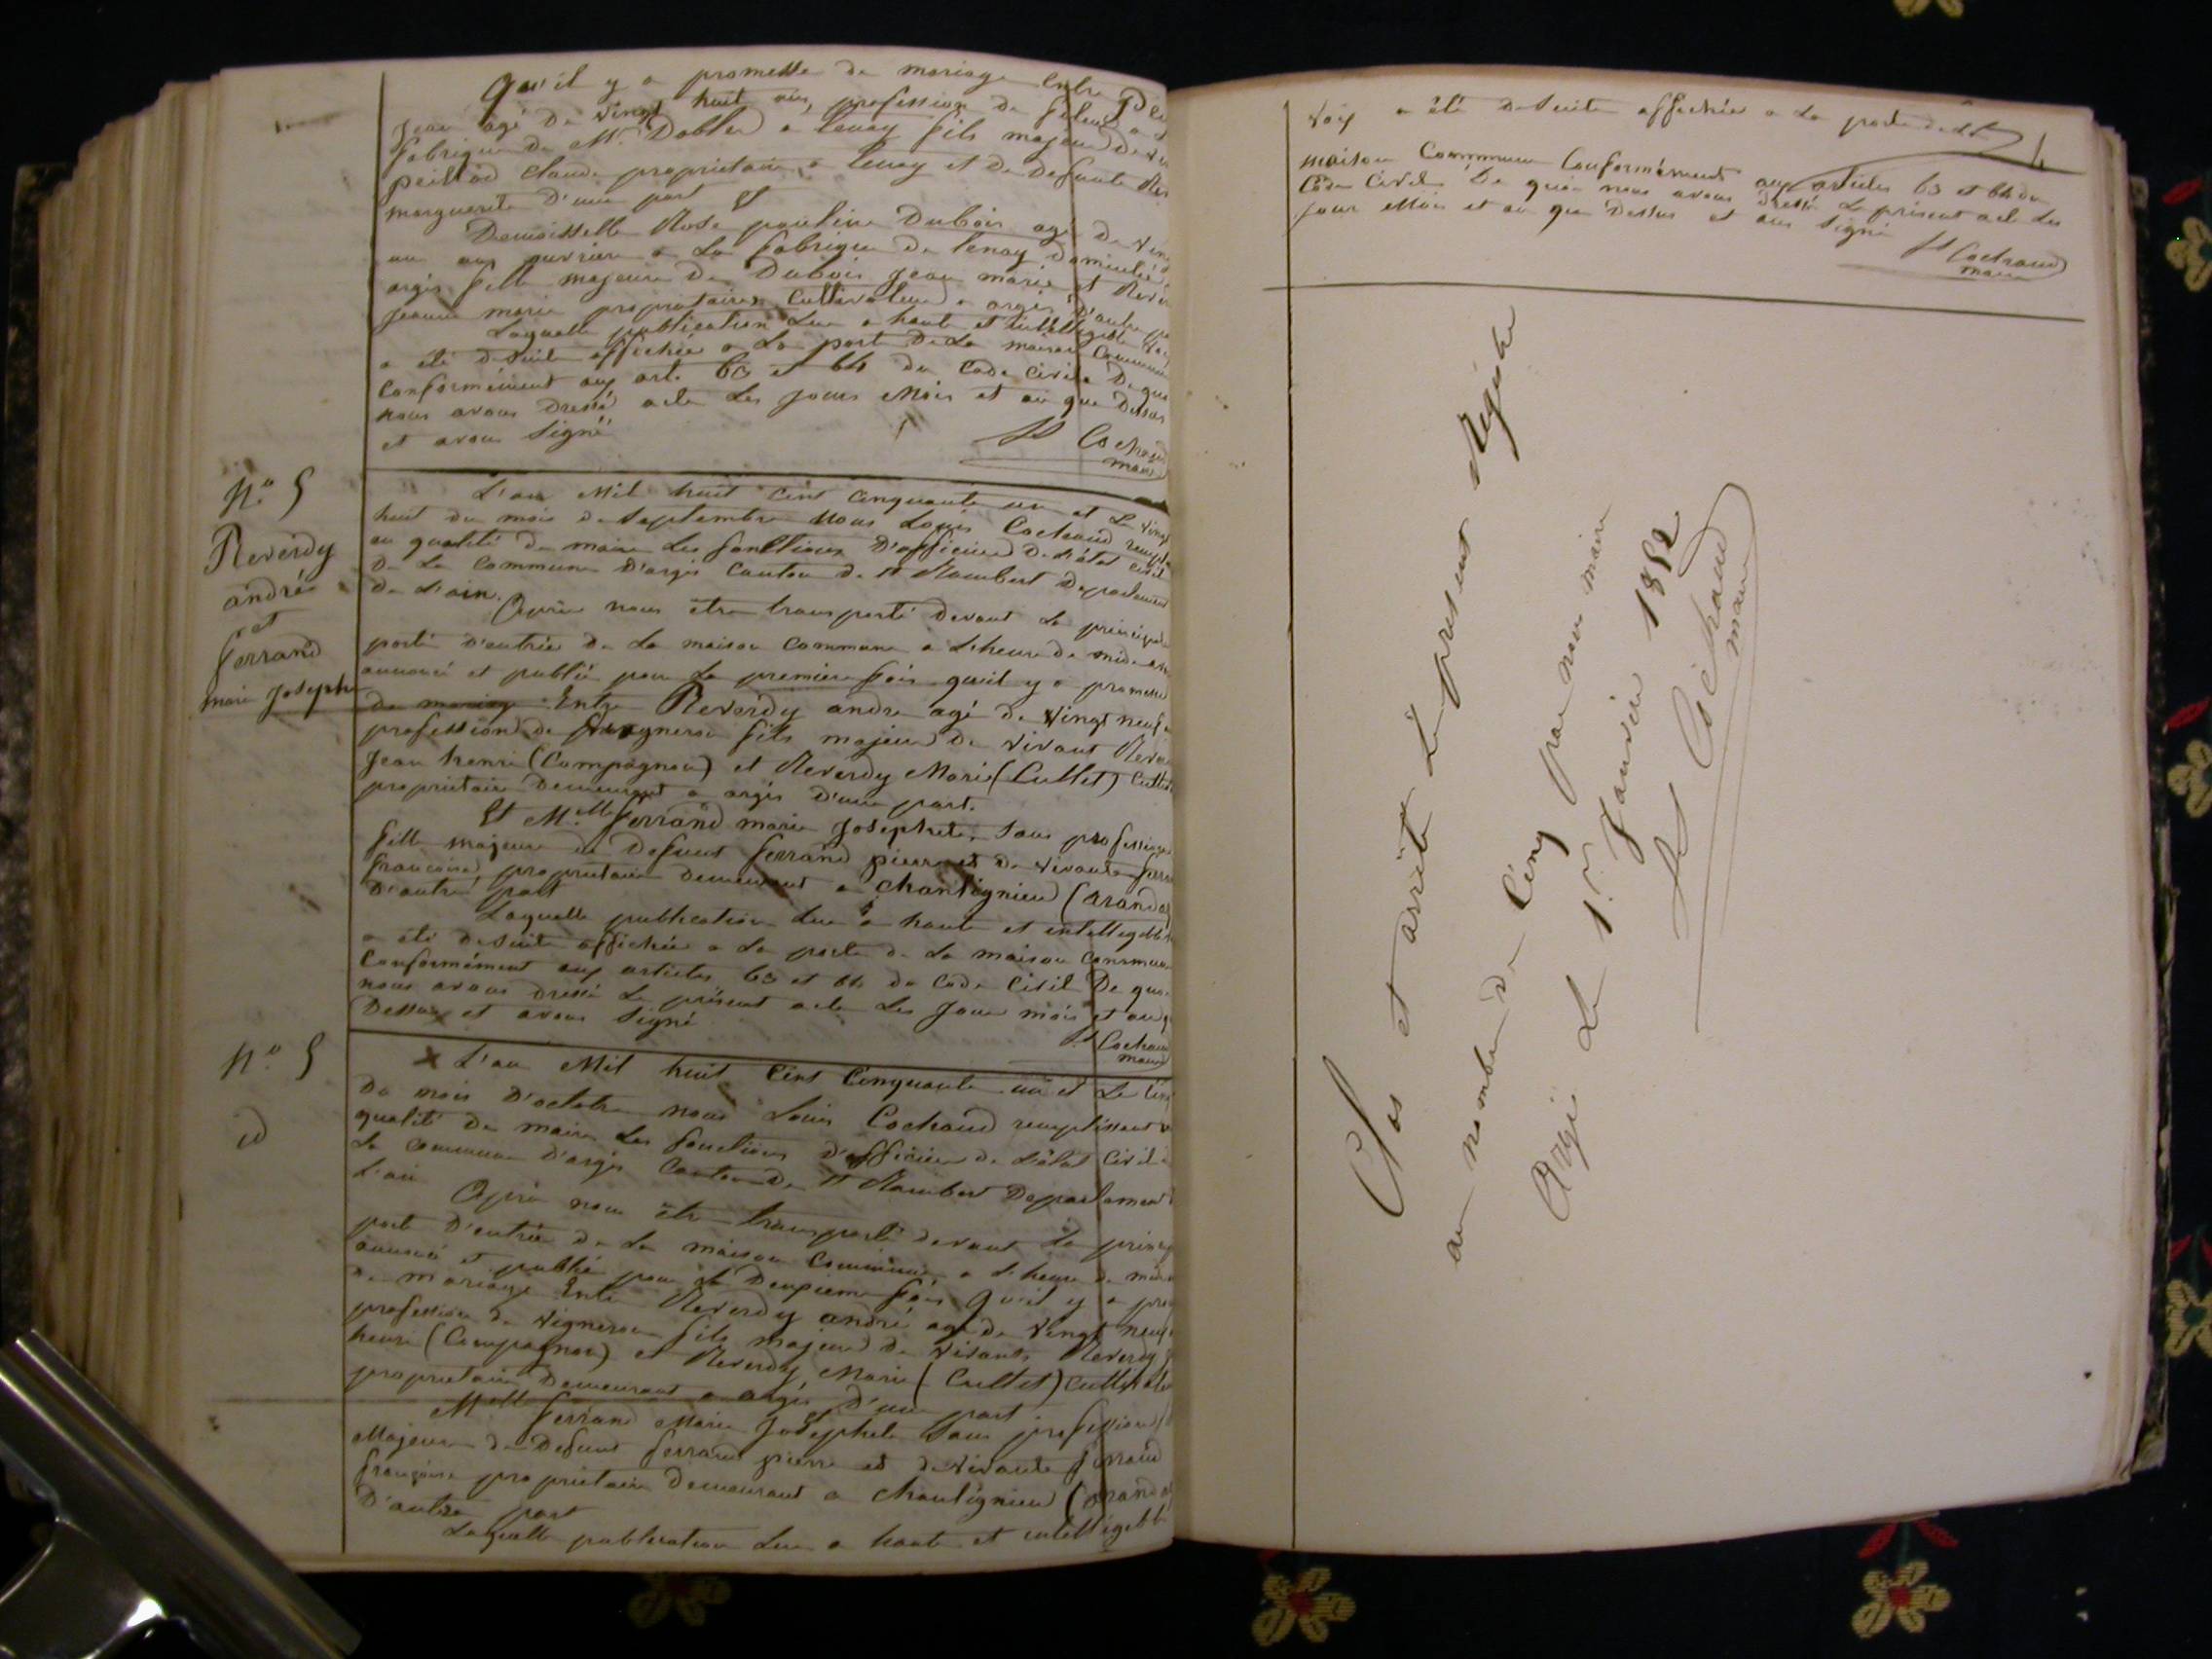 qu'il y a promesse de mariage entre
Jean agé de vingt huit ans, profession de fileur
fabrique de Mr. Dobler a tenay fils majeur de
peillod Claude propriétaire a tenay et de defunte
marguerite D'une part Et
Demoisselle Rose pauline Dubois agé de vingt
un ans ouvrière a La fabrique de tenay Domicilié
argis fille majeure de Dubois Jean marie et
Jeanne marie propriétaires Cultivateurs a argis D'autre
Laquelle publication Lue a haute et intelligible voix
a été desuite affichée a La porte de La maison Commune
Conformément aux art. 63 et 64 du Code Civile De quoi
nous avons Dressé acte Les Jours Mois et an que Dessus
et avons Signé
Ls Cochand
maire
N.o 5
Reverdy
andré
et
ferrand
marie Josephte
L'an Mil huit Cent Cinquante un et Le vingt
huit du mois de Septembre Nous Louis Cochand
en qualité de maire Les fonctions D'officier De L'état Civil
De La Commune D'argis Canton de St Rambert Departement
De L'ain.
Après nous être transporté Devant La principale
porte D'entrée de La maison Commune a L'heure De midi
annoncé et publié pour La premiere fois qu'il y a promesse
de mariage Entre Reverdy andre agé de vingt neuf
profession de vigneron fils majeur De vivant
Jean henri (Compagnon) et Reverdy Marie (Cullet)
propriétaire Demeurant a argis D'une part.
Et M.elle ferrand marie Josephete, Sans profession
fille majeure de Defunt ferrand pierre et De vivante
francoise, propriétaire Demeurant a Chantignieu (aranda)
D'autre part
Laquelle publication Lue a haute et intelligible
a été desuite affichée a La porte de La maison Commune
Conformément aux articles 63 et 64 du Code Civil De quoi
nous avons Dressé Le présent acte Les Jour mois et an
Dessus et avons Signé
Ls Cochand
maire
N.o 5
id
L'an Mil huit Cent Cinquante un et Le Cinq
du mois D'octobre nous Louis Cochand remplissant
qualité De maire Les fonctions D'officier de L'état Civil
La Commune D'argis Canton De St Rambert Departement
L'ain
Après nous être transporté devant La
porte D'entrée de La maison Commune, a L'heure De
annoncé et publié pour La Deuxieme fois qu'il y a
de mariage Entre Reverdy andré agé De vingt neuf
profession De vigneron fils majeur de vivants Reverdy
henri (Compagnon) et Reverdy, Marie (Cullet)
propriétaire Demeurant a argis D'une part
et
M.elle ferrand Marie Josephete Sans profession
Majeure De Defunt ferrand pierre et De vivante ferrand
françoise propriétaire Demeurant a Chantignieu (aranda)
D'autre part
Laquelle publication Lue a haute et intelligible
voix a été Desuite affichée a La porte de la
maison Commune Conformément aux articles 63 et 64 du
Code Civil De quoi nous avons Dressé Le présent acte Les
Jour Mois et an que Dessus et avons Signé
Ls Cochand
maire
Clos et arrêté Le present Régistre
au nombre De Cinq par nous maire
Argis Le 1.r Janvier 1852
Ls Cochand
maire